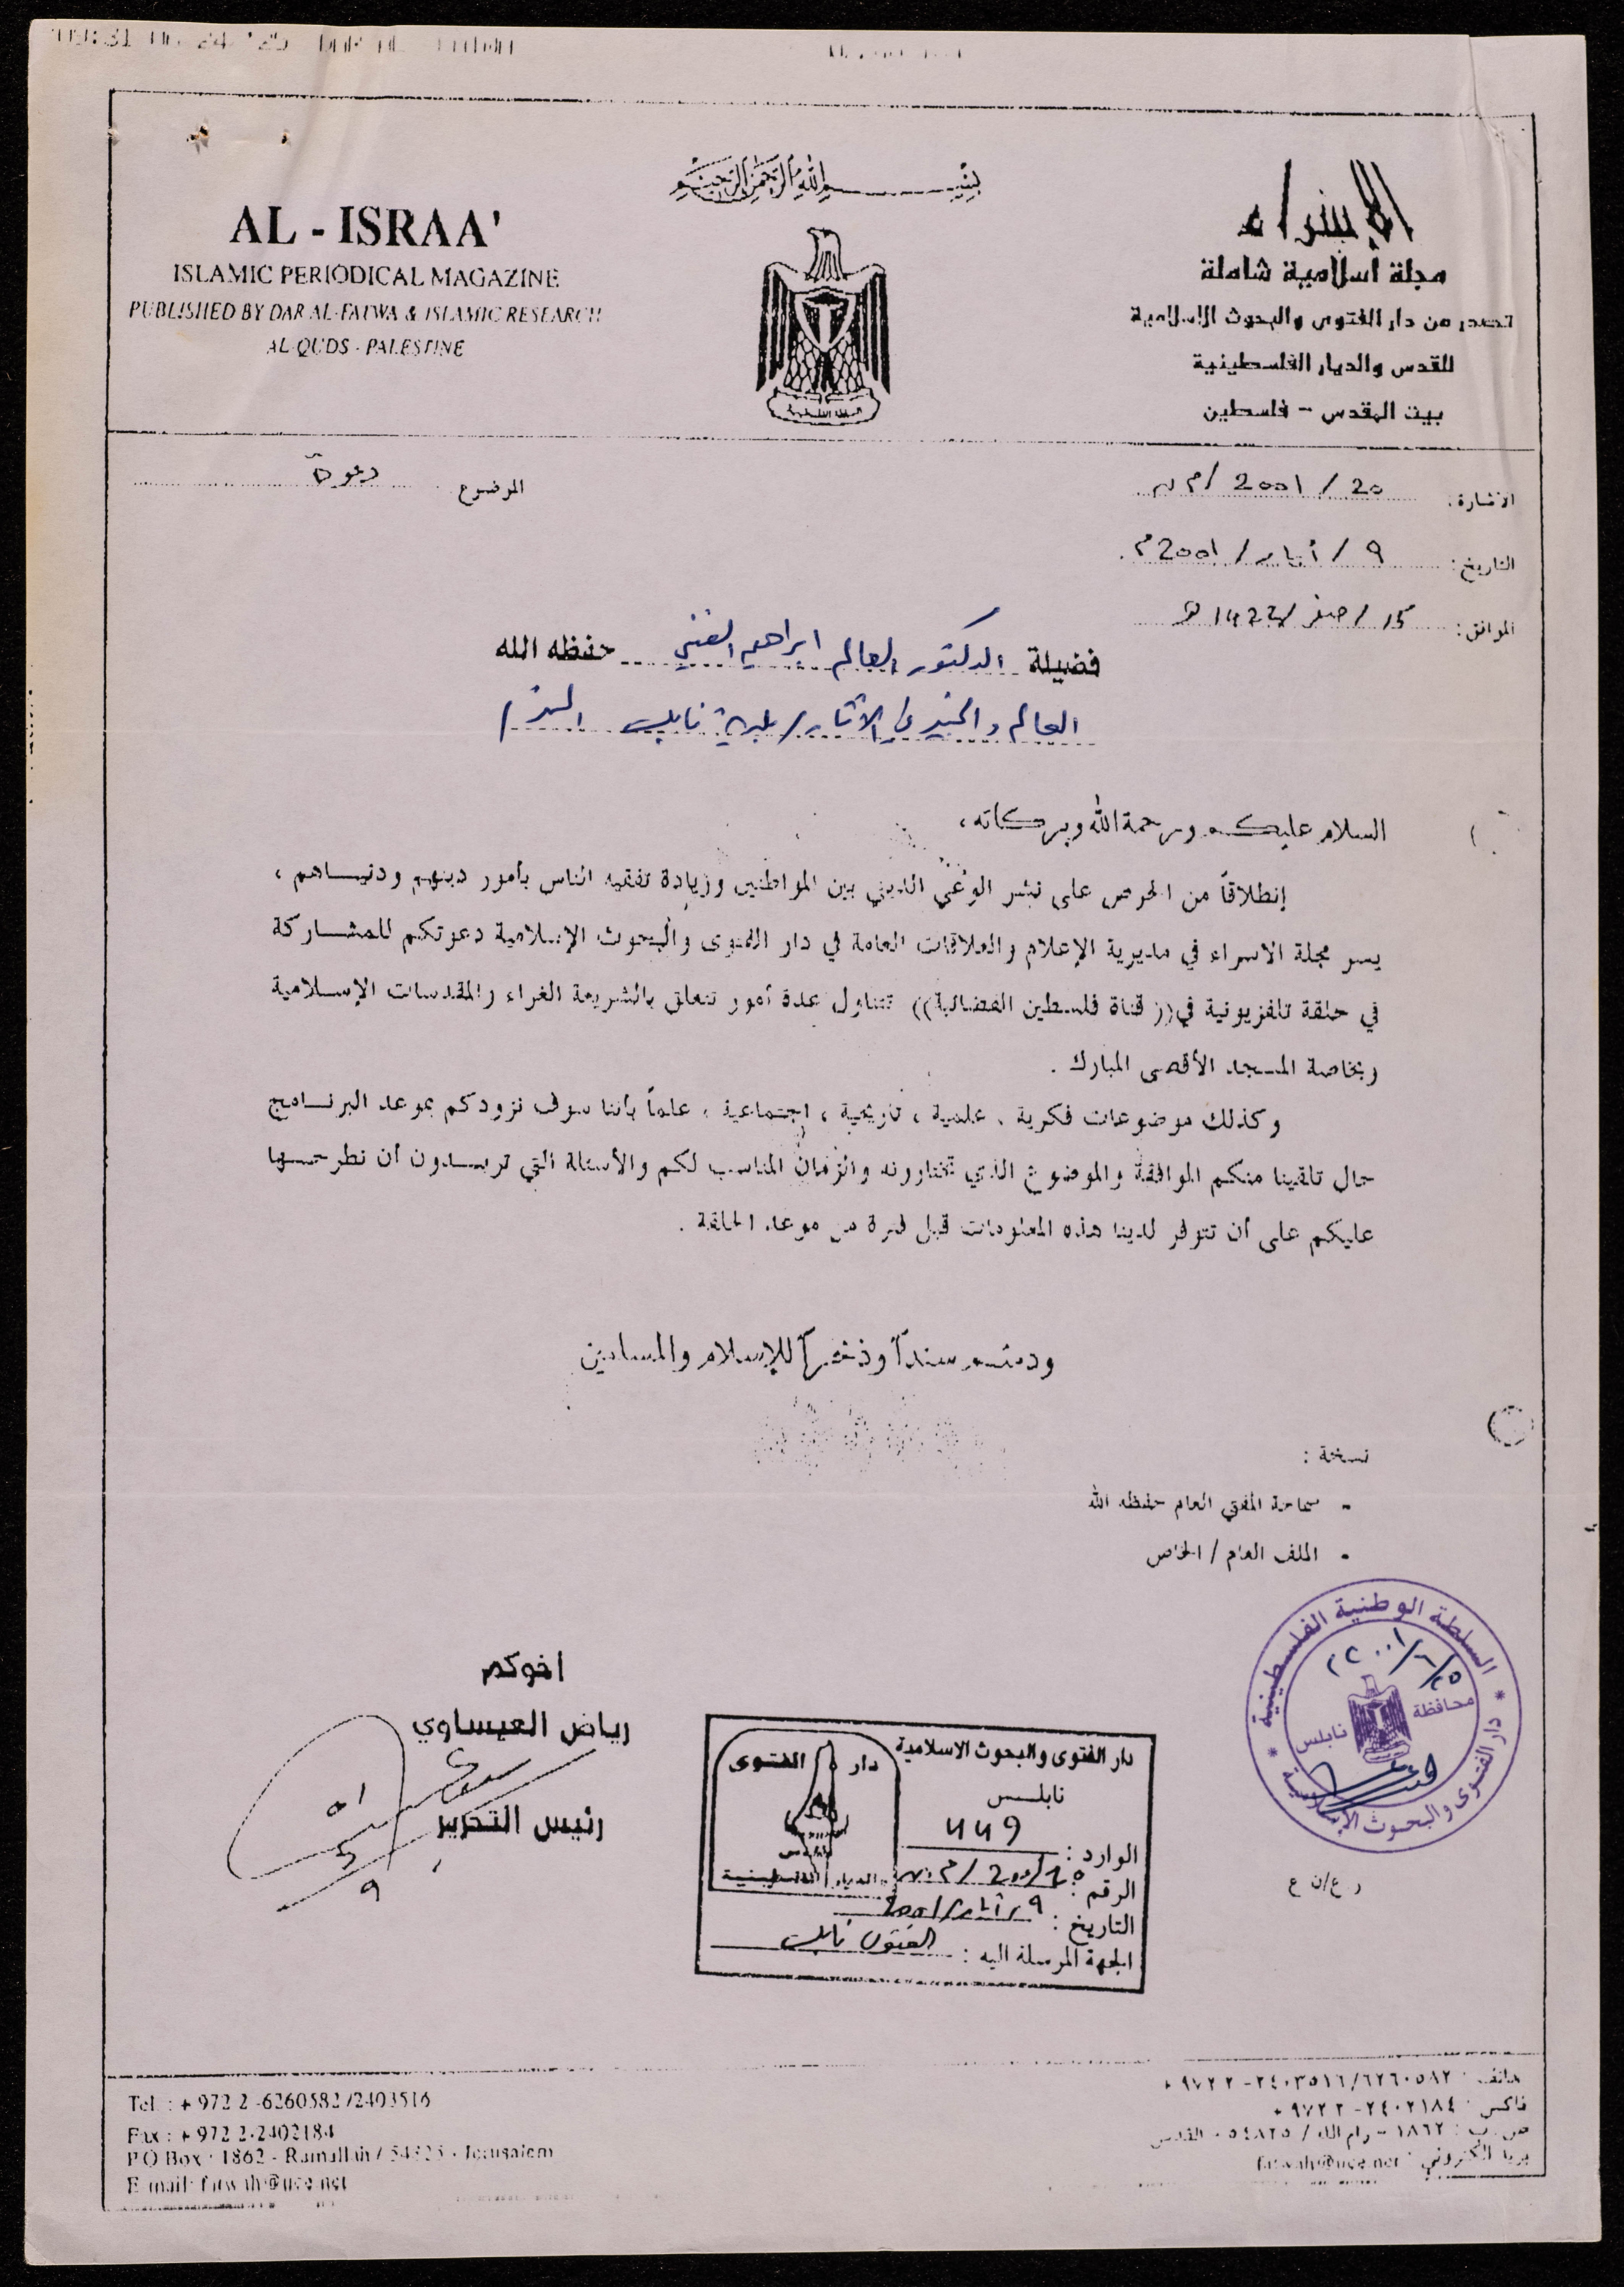 بسم الله الرحمن الرحيم
AL - ISRAA'
ISLAMIC PERIODICAL MAGAZINE
PUBLISHED BY DAR AL-FATWA & ISLAMIC RESEARCH
AL-QUDS - PALESTINE
الإسراء
مجلة اسلامية شاملة
تصدر من دار الفتوى والبحوث الاسلامية
للقدس والديار الفلسطينية
بيت المقدس - فلسطين
السلطة الفلسطينية
الاشارة: 20 / 2001 /
الموضوع دعوة
التاريخ: ٩ / أيار / 2001م
الموافق: 15 / صفر / 1422 هـ
فضيلة الدكتور العالم ابراهيم الفني حفظه الله
العالم والخبير في الآثار / بلدية نابلس
السلام عليكم ورحمة الله وبركاته ،
إنطلاقاً من الحرص على نشر الوعي الديني بين المواطنين وزيادة تفقيه الناس بأمور دينهم ودنياهم ،
يسر مجلة الاسراء في مديرية الإعلام والعلاقات العامة في دار الفتوى والبحوث الإسلامية دعوتكم للمشاركة
في حلقة تلفزيونية في (( قناة فلسطين الفضائية )) تتناول عدة أمور تتعلق بالشريعة الغراء والمقدسات الإسلامية
وبخاصة المسجد الأقصى المبارك .
وكذلك موضوعات فكرية ، علمية ، تاريخية ، اجتماعية ، علماً بأننا سوف نزودكم بموعد البرنامج
حال تلقينا منكم الموافقة والموضوع الذي تختارونه والزمان المناسب لكم والأسئلة التي تريدون أن نطرحها
عليكم على أن تتوفر لدينا هذه المعلومات قبل فترة من موعد الحلقة .
ودمتم سنداً وذخراً للإسلام والمسلمين
نسخة :
- سماحة المفتي العام حفظه الله
- الملف العام / الخاص
السلطة الوطنية الفلسطينية
دار الفتوى والبحوث الإسلامية
محافظة نابلس
اخوكم
رياض العيساوي
رئيس التحرير
دار الفتوى والبحوث الاسلامية
نابلس
دار الفتوى
القدس
والديار الفلسطينية
الوارد : ٤٤٩
الرقم : 20/2001/
التاريخ : ٩/أيار/2001
الجهة المرسلة اليه :
ر ع/ن ع
Tel : + 972 2 -6260582 /2403516
Fax : + 972 2-2402184
P.O Box : 1862 - Ramallah / 54825 - Jerusalem
E-mail: fatwah@uce.net
هاتف : ٦٢٦٠٥٨٢/٢٤٠٣٥١٦ -٢ ٩٧٢ +
فاكس : ٢٤٠٢١٨٤ -٢ ٩٧٢ +
ص.ب : ١٨٦٢ - رام الله / ٥٤٨٢٥ - القدس
بريد الكتروني : fatwah@uce.net